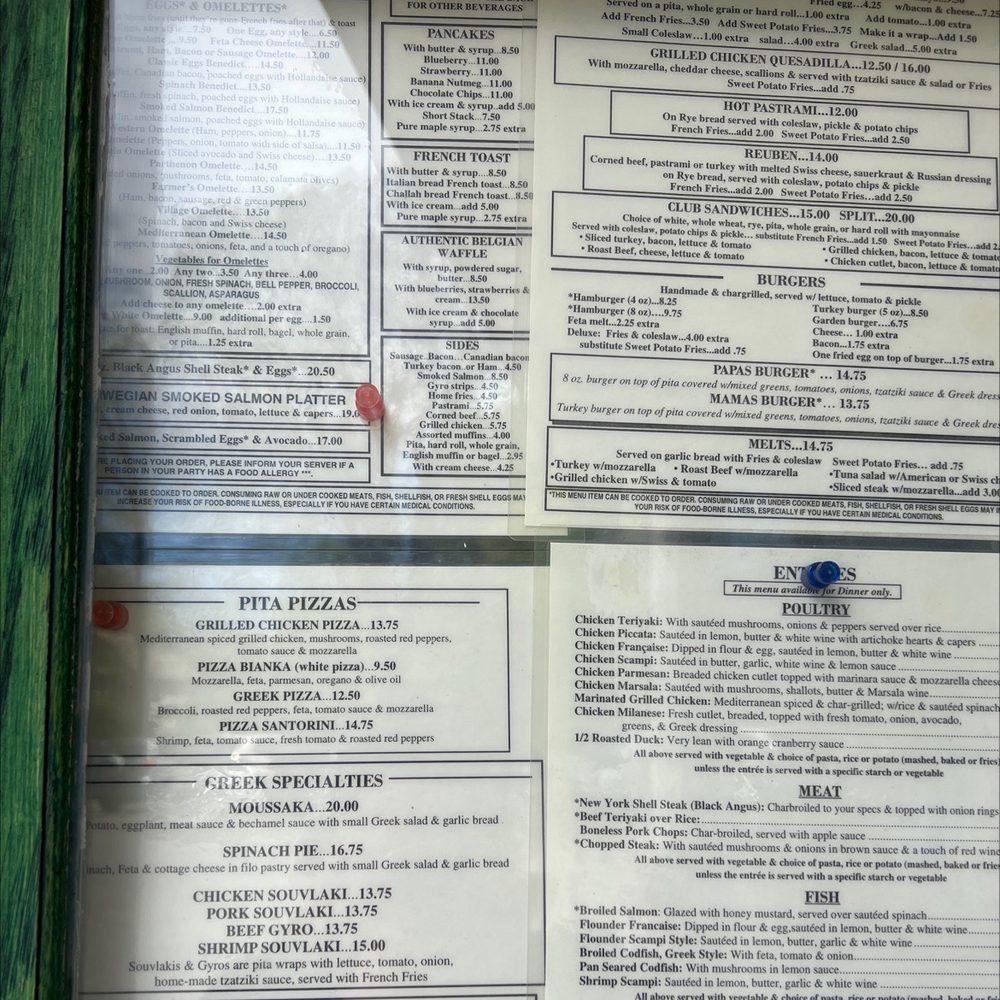 EGGS* & OMELETTES*
(until they're gone-French fries after that) & toast
any style..7.50 One Egg, any style...6.50
Omelette ...9.50 Feta Cheese Omelette...11.50
Ham, Bacon or Sausage Omelette...12.00
Classic Eggs Benedict....14.50
Canadian bacon, poached eggs with Hollandaise sauce)
Spinach Benedict....13.50
fresh spinach, poached eggs with Hollandaise sauce)
Smoked Salmon Benedict....17.50
smoked salmon, poached eggs with Hollandaise sauce)
Omelette (Ham, peppers, onion)....11.75
Omelette (Peppers, onion, tomato with side of salsa)...11.50
Omelette (Sliced avocado and Swiss cheese)....13.50
Parthenon Omelette....14.50
onions, mushrooms, feta, tomato, calamata olives)
Farmer's Omelette....13.50
(Ham, bacon, sausage, red & green peppers)
Village Omelette....13.50
(Spinach, bacon and Swiss cheese)
Mediterranean Omelette....14.50
peppers, tomatoes, onions, feta, and a touch of oregano)
Vegetables for Omelettes
Any one..2.00 Any two..3.50 Any three...4.00
MUSHROOM, ONION, FRESH SPINACH, BELL PEPPER, BROCCOLI,
SCALLION, ASPARAGUS
Add cheese to any omelette....2.00 extra
White Omelette...9.00 additional per egg....1.50
for toast: English muffin, hard roll, bagel, whole grain,
or pita....1.25 extra
z. Black Angus Shell Steak* & Eggs*...20.50
WEGIAN SMOKED SALMON PLATTER
cream cheese, red onion, tomato, lettuce & capers...19.0
ked Salmon, Scrambled Eggs* & Avocado...17.00
RE PLACING YOUR ORDER, PLEASE INFORM YOUR SERVER IF A
PERSON IN YOUR PARTY HAS A FOOD ALLERGY ***.
U ITEM CAN BE COOKED TO ORDER. CONSUMING RAW OR UNDER COOKED MEATS, FISH, SHELLFISH, OR FRESH SHELL EGGS MAY
INCREASE YOUR RISK OF FOOD-BORNE ILLNESS, ESPECIALLY IF YOU HAVE CERTAIN MEDICAL CONDITIONS.
FOR OTHER BEVERAGES
PANCAKES
With butter & syrup...8.50
Blueberry...11.00
Strawberry...11.00
Banana Nutmeg...11.00
Chocolate Chips...11.00
With ice cream & syrup..add 5.00
Short Stack...7.50
Pure maple syrup...2.75 extra
FRENCH TOAST
With butter & syrup....8.50
Italian bread French toast...8.50
Challah bread French toast...8.50
With ice cream...add 5.00
Pure maple syrup...2.75 extra
AUTHENTIC BELGIAN
WAFFLE
With syrup, powdered sugar,
butter...8.50
With blueberries, strawberries &
cream...13.50
With ice cream & chocolate
syrup...add 5.00
SIDES
Sausage..Bacon...Canadian bacon
Turkey bacon..or Ham...4.50
Smoked Salmon...8.50
Gyro strips...4.50
Home fries...4.50
Pastrami...5.75
Corned beef...5.75
Grilled chicken...5.75
Assorted muffins...4.00
Pita, hard roll, whole grain,
English muffin or bagel...2.95
With cream cheese...4.25
Served on a pita, whole grain or hard roll...1.00 extra Fried egg...4.25 w/bacon & cheese...7.25
Add French Fries...3.50 Add Sweet Potato Fries...3.75 Add tomato...1.00 extra
Small Coleslaw...1.00 extra salad...4.00 extra Make it a wrap...Add 1.50
Greek salad...5.00 extra
GRILLED CHICKEN QUESADILLA...12.50 / 16.00
With mozzarella, cheddar cheese, scallions & served with tzatziki sauce & salad or Fries
Sweet Potato Fries...add .75
HOT PASTRAMI...12.00
On Rye bread served with coleslaw, pickle & potato chips
French Fries...add 2.00 Sweet Potato Fries...add 2.50
REUBEN...14.00
Corned beef, pastrami or turkey with melted Swiss cheese, sauerkraut & Russian dressing
on Rye bread, served with coleslaw, potato chips & pickle
French Fries...add 2.00 Sweet Potato Fries...add 2.50
CLUB SANDWICHES...15.00 SPLIT...20.00
Choice of white, whole wheat, rye, pita, whole grain, or hard roll with mayonnaise
Served with coleslaw, potato chips & pickle… substitute French Fries...add 1.50 Sweet Potato Fries...add 2.
• Sliced turkey, bacon, lettuce & tomato • Grilled chicken, bacon, lettuce & tomato
• Roast Beef, cheese, lettuce & tomato • Chicken cutlet, bacon, lettuce & tomato
BURGERS
Handmade & chargrilled, served w/ lettuce, tomato & pickle
*Hamburger (4 oz)...8.25 Turkey burger (5 oz)...8.50
*Hamburger (8 oz)....9.75 Garden burger....6.75
Feta melt...2.25 extra Cheese… 1.00 extra
Deluxe: Fries & coleslaw...4.00 extra Bacon...1.75 extra
substitute Sweet Potato Fries...add .75 One fried egg on top of burger...1.75 extra
PAPAS BURGER* … 14.75
8 oz. burger on top of pita covered w/mixed greens, tomatoes, onions, tzatziki sauce & Greek dress
MAMAS BURGER*… 13.75
Turkey burger on top of pita covered w/mixed greens, tomatoes, onions, tzatziki sauce & Greek dres
MELTS...14.75
Served on garlic bread with Fries & coleslaw Sweet Potato Fries… add .75
•Turkey w/mozzarella • Roast Beef w/mozzarella •Tuna salad w/American or Swiss ch
•Grilled chicken w/Swiss & tomato •Sliced steak w/mozzarella...add 3.00
*THIS MENU ITEM CAN BE COOKED TO ORDER. CONSUMING RAW OR UNDER COOKED MEATS, FISH, SHELLFISH, OR FRESH SHELL EGGS MAY IN
YOUR RISK OF FOOD-BORNE ILLNESS, ESPECIALLY IF YOU HAVE CERTAIN MEDICAL CONDITIONS.
PITA PIZZAS
GRILLED CHICKEN PIZZA...13.75
Mediterranean spiced grilled chicken, mushrooms, roasted red peppers,
tomato sauce & mozzarella
PIZZA BIANKA (white pizza)...9.50
Mozzarella, feta, parmesan, oregano & olive oil
GREEK PIZZA...12.50
Broccoli, roasted red peppers, feta, tomato sauce & mozzarella
PIZZA SANTORINI...14.75
Shrimp, feta, tomato sauce, fresh tomato & roasted red peppers
GREEK SPECIALTIES
MOUSSAKA...20.00
Potato, eggplant, meat sauce & bechamel sauce with small Greek salad & garlic bread
SPINACH PIE...16.75
inach, Feta & cottage cheese in filo pastry served with small Greek salad & garlic bread
CHICKEN SOUVLAKI...13.75
PORK SOUVLAKI...13.75
BEEF GYRO...13.75
SHRIMP SOUVLAKI...15.00
Souvlakis & Gyros are pita wraps with lettuce, tomato, onion,
home-made tzatziki sauce, served with French Fries
ENTREES
This menu available for Dinner only.
POULTRY
Chicken Teriyaki: With sautéed mushrooms, onions & peppers served over rice
Chicken Piccata: Sautéed in lemon, butter & white wine with artichoke hearts & capers
Chicken Française: Dipped in flour & egg, sautéed in lemon, butter & white wine
Chicken Scampi: Sautéed in butter, garlic, white wine & lemon sauce
Chicken Parmesan: Breaded chicken cutlet topped with marinara sauce & mozzarella chees
Chicken Marsala: Sautéed with mushrooms, shallots, butter & Marsala wine
Marinated Grilled Chicken: Mediterranean spiced & char-grilled; w/rice & sautéed spinach
Chicken Milanese: Fresh cutlet, breaded, topped with fresh tomato, onion, avocado,
greens, & Greek dressing
1/2 Roasted Duck: Very lean with orange cranberry sauce
All above served with vegetable & choice of pasta, rice or potato (mashed, baked or fries)
unless the entrée is served with a specific starch or vegetable
MEAT
*New York Shell Steak (Black Angus): Charbroiled to your specs & topped with onion rings
*Beef Teriyaki over Rice:
Boneless Pork Chops: Char-broiled, served with apple sauce
*Chopped Steak: With sautéed mushrooms & onions in brown sauce & a touch of red wine
All above served with vegetable & choice of pasta, rice or potato (mashed, baked or fries
unless the entrée is served with a specific starch or vegetable
FISH
*Broiled Salmon: Glazed with honey mustard, served over sautéed spinach
Flounder Francaise: Dipped in flour & egg,sautéed in lemon, butter & white wine
Flounder Scampi Style: Sautéed in lemon, butter, garlic & white wine
Broiled Codfish, Greek Style: With feta, tomato & onion
Pan Seared Codfish: With mushrooms in lemon sauce
Shrimp Scampi: Sautéed in lemon, butter, garlic & white wine
All above served with vegetable & choice of pasta, rice or potato (mashed, baked or